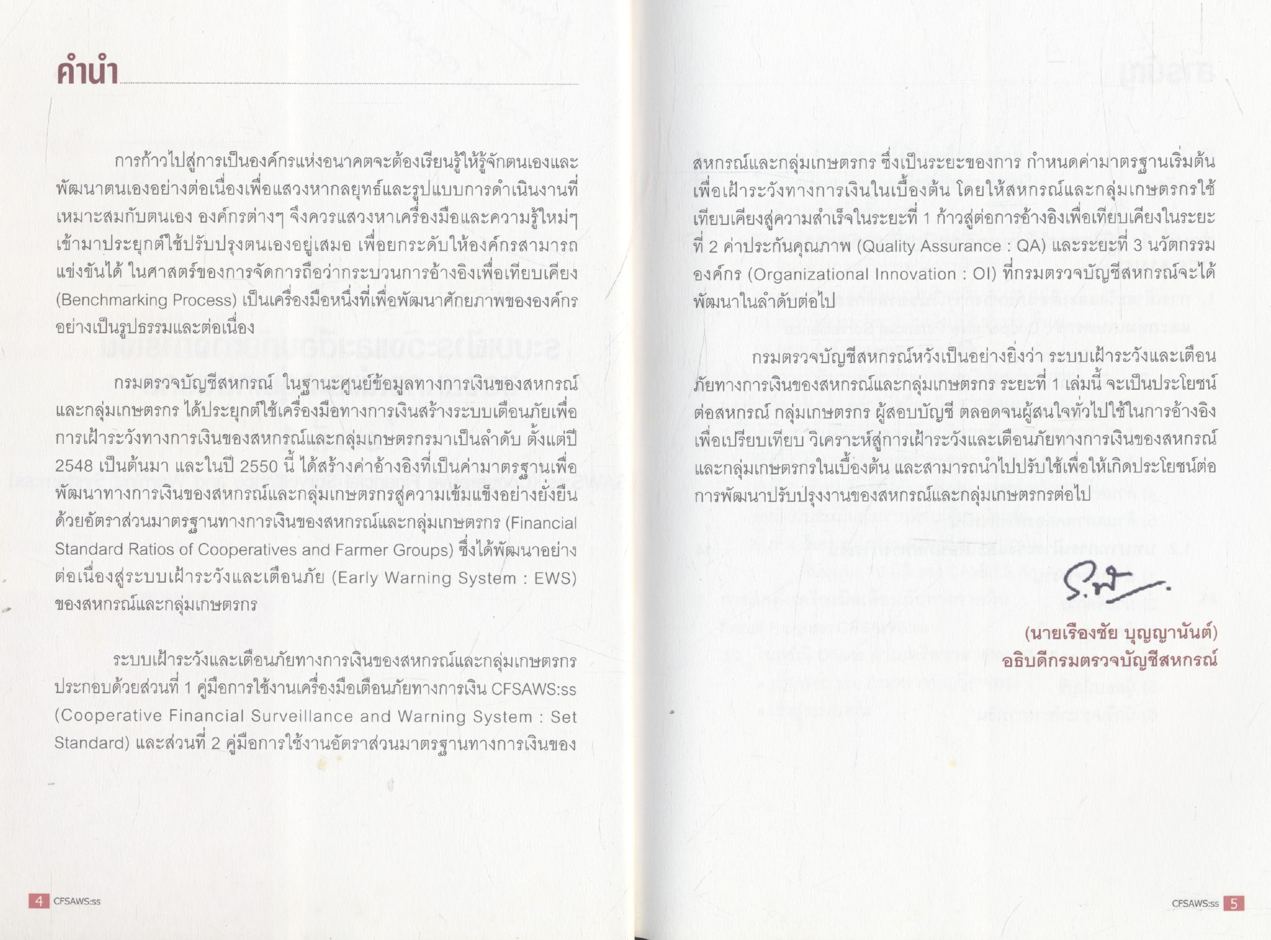 คำนำ
การก้าวไปสู่การเป็นองค์กรแห่งอนาคตจะต้องเรียนรู้ให้รู้จักตนเองและ
พัฒนาตนเองอย่างต่อเนื่องเพื่อแสวงหากลยุทธ์และรูปแบบการดำเนินงานที่
เหมาะสมกับตนเอง องค์กรต่างๆ จึงควรแสวงหาเครื่องมือและความรู้ใหม่ๆ
เข้ามาประยุกต์ใช้ปรับปรุงตนเองอยู่เสมอ เพื่อยกระดับให้องค์กรสามารถ
แข่งขันได้ ในศาสตร์ของการจัดการถือว่ากระบวนการอ้างอิงเพื่อเทียบเคียง
(Benchmarking Process) เป็นเครื่องมือหนึ่งที่เพื่อพัฒนาศักยภาพขององค์กร
อย่างเป็นรูปธรรมและต่อเนื่อง
กรมตรวจบัญชีสหกรณ์ ในฐานะศูนย์ข้อมูลทางการเงินของสหกรณ์
และกลุ่มเกษตรกร ได้ประยุกต์ใช้เครื่องมือทางการเงินสร้างระบบเตือนภัยเพื่อ
การเฝ้าระวังทางการเงินของสหกรณ์และกลุ่มเกษตรกรมาเป็นลำดับ ตั้งแต่ปี
2548 เป็นต้นมา และในปี 2550 นี้ ได้สร้างค่าอ้างอิงที่เป็นค่ามาตรฐานเพื่อ
พัฒนาทางการเงินของสหกรณ์และกลุ่มเกษตรกรสู่ความเข้มแข็งอย่างยั่งยืน
ด้วยอัตราส่วนมาตรฐานทางการเงินของสหกรณ์และกลุ่มเกษตรกร (Financial
Standard Ratios of Cooperatives and Farmer Groups) ซึ่งได้พัฒนาอย่าง
ต่อเนื่องสู่ระบบเฝ้าระวังและเตือนภัย (Early Warning System : EWS)
ของสหกรณ์และกลุ่มเกษตรกร
ระบบเฝ้าระวังและเตือนภัยทางการเงินของสหกรณ์และกลุ่มเกษตรกร
ประกอบด้วยส่วนที่ 1 คู่มือการใช้งานเครื่องมือเตือนภัยทางการเงิน CFSAWS:ss
(Cooperative Financial Surveillance and Warning System : Set
Standard) และส่วนที่ 2 คู่มือการใช้งานอัตราส่วนมาตรฐานทางการเงินของ
4 CFSAWS:ss
สหกรณ์และกลุ่มเกษตรกร ซึ่งเป็นระยะของการ กำหนดค่ามาตรฐานเริ่มต้น
เพื่อเฝ้าระวังทางการเงินในเบื้องต้น โดยให้สหกรณ์และกลุ่มเกษตรกรใช้
เทียบเคียงสู่ความสำเร็จในระยะที่ 1 ก้าวสู่ต่อการอ้างอิงเพื่อเทียบเคียงในระยะ
ที่ 2 ค่าประกันคุณภาพ (Quality Assurance : QA) และระยะที่ 3 นวัตกรรม
องค์กร (Organizational Innovation : OI) ที่กรมตรวจบัญชีสหกรณ์จะได้
พัฒนาในลำดับต่อไป
กรมตรวจบัญชีสหกรณ์หวังเป็นอย่างยิ่งว่า ระบบเฝ้าระวังและเตือน
ภัยทางการเงินของสหกรณ์และกลุ่มเกษตรกร ระยะที่ 1 เล่มนี้ จะเป็นประโยชน์
ต่อสหกรณ์ กลุ่มเกษตรกร ผู้สอบบัญชี ตลอดจนผู้สนใจทั่วไปใช้ในการอ้างอิง
เพื่อเปรียบเทียบ วิเคราะห์สู่การเฝ้าระวังและเตือนภัยทางการเงินของสหกรณ์
และกลุ่มเกษตรกรในเบื้องต้น และสามารถนำไปปรับใช้เพื่อให้เกิดประโยชน์ต่อ
การพัฒนาปรับปรุงงานของสหกรณ์และกลุ่มเกษตรกรต่อไป
(นายเรืองชัย บุญญานันต์)
อธิบดีกรมตรวจบัญชีสหกรณ์
CFSAWS:ss 5